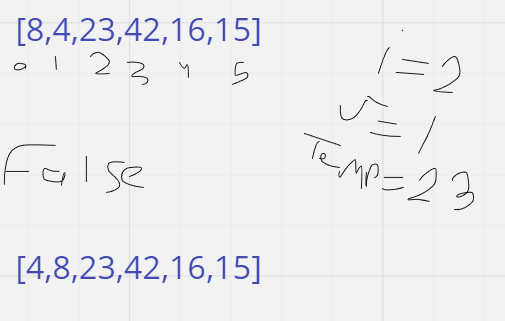 [8,4,23,42,16,15]
0 1 2 3 4 5
i=2
J=1
Temp=23
False
[4,8,23,42,16,15]